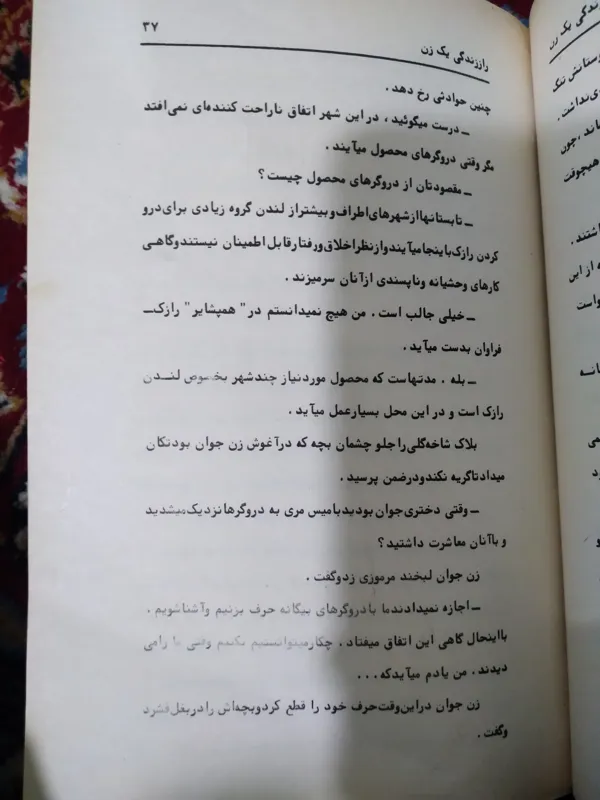 راززندگی یک زن ۳۷
چنین حوادثی رخ دهد .
ــ درست میگوئید ، در این شهر اتفاق ناراحت کننده‌ای نمی‌افتد
مگر وقتی دروگرهای محصول میآیند .
ــ مقصودتان از دروگرهای محصول چیست ؟
ــ تابستانها از شهرهای اطراف و بیشتر از لندن گروه زیادی برای درو
کردن رازک باینجا میآیند و از نظر اخلاق و رفتار قابل اطمینان نیستند و گاهی
کارهای وحشیانه و ناپسندی از آنان سرمیزند .
ــ خیلی جالب است . من هیچ نمیدانستم در " همپشایر " رازک ــ
فراوان بدست میآید .
ــ بله . مدتهاست که محصول مورد نیاز چند شهر بخصوص لندن
رازک است و در این محل بسیار عمل میآید .
بلاک شاخه گلی را جلو چشمان بچه که در آغوش زن جوان بود تکان
میداد تا گریه نکند و در ضمن پرسید .
ــ وقتی دختری جوان بودید با میس مری به دروگرها نزدیک میشدید
و با آنان معاشرت داشتید ؟
زن جوان لبخند مرموزی زد و گفت .
ــ اجازه نمیدادند ما با دروگرهای بیگانه حرف بزنیم و آشنا شویم .
با اینحال گاهی این اتفاق میفتاد . چکار میتوانستیم بکنیم وقتی ما را می
دیدند . من یادم میآید که . . .
زن جوان در این وقت حرف خود را قطع کرد و بچه‌اش را در بغل فشرد
و گفت .
ندگی یک زن
وستانش تنگ
ی نداشت .
ماند ، چون
هیچوقت
اشتند .
ه از این
واست
انه
می
رد
و